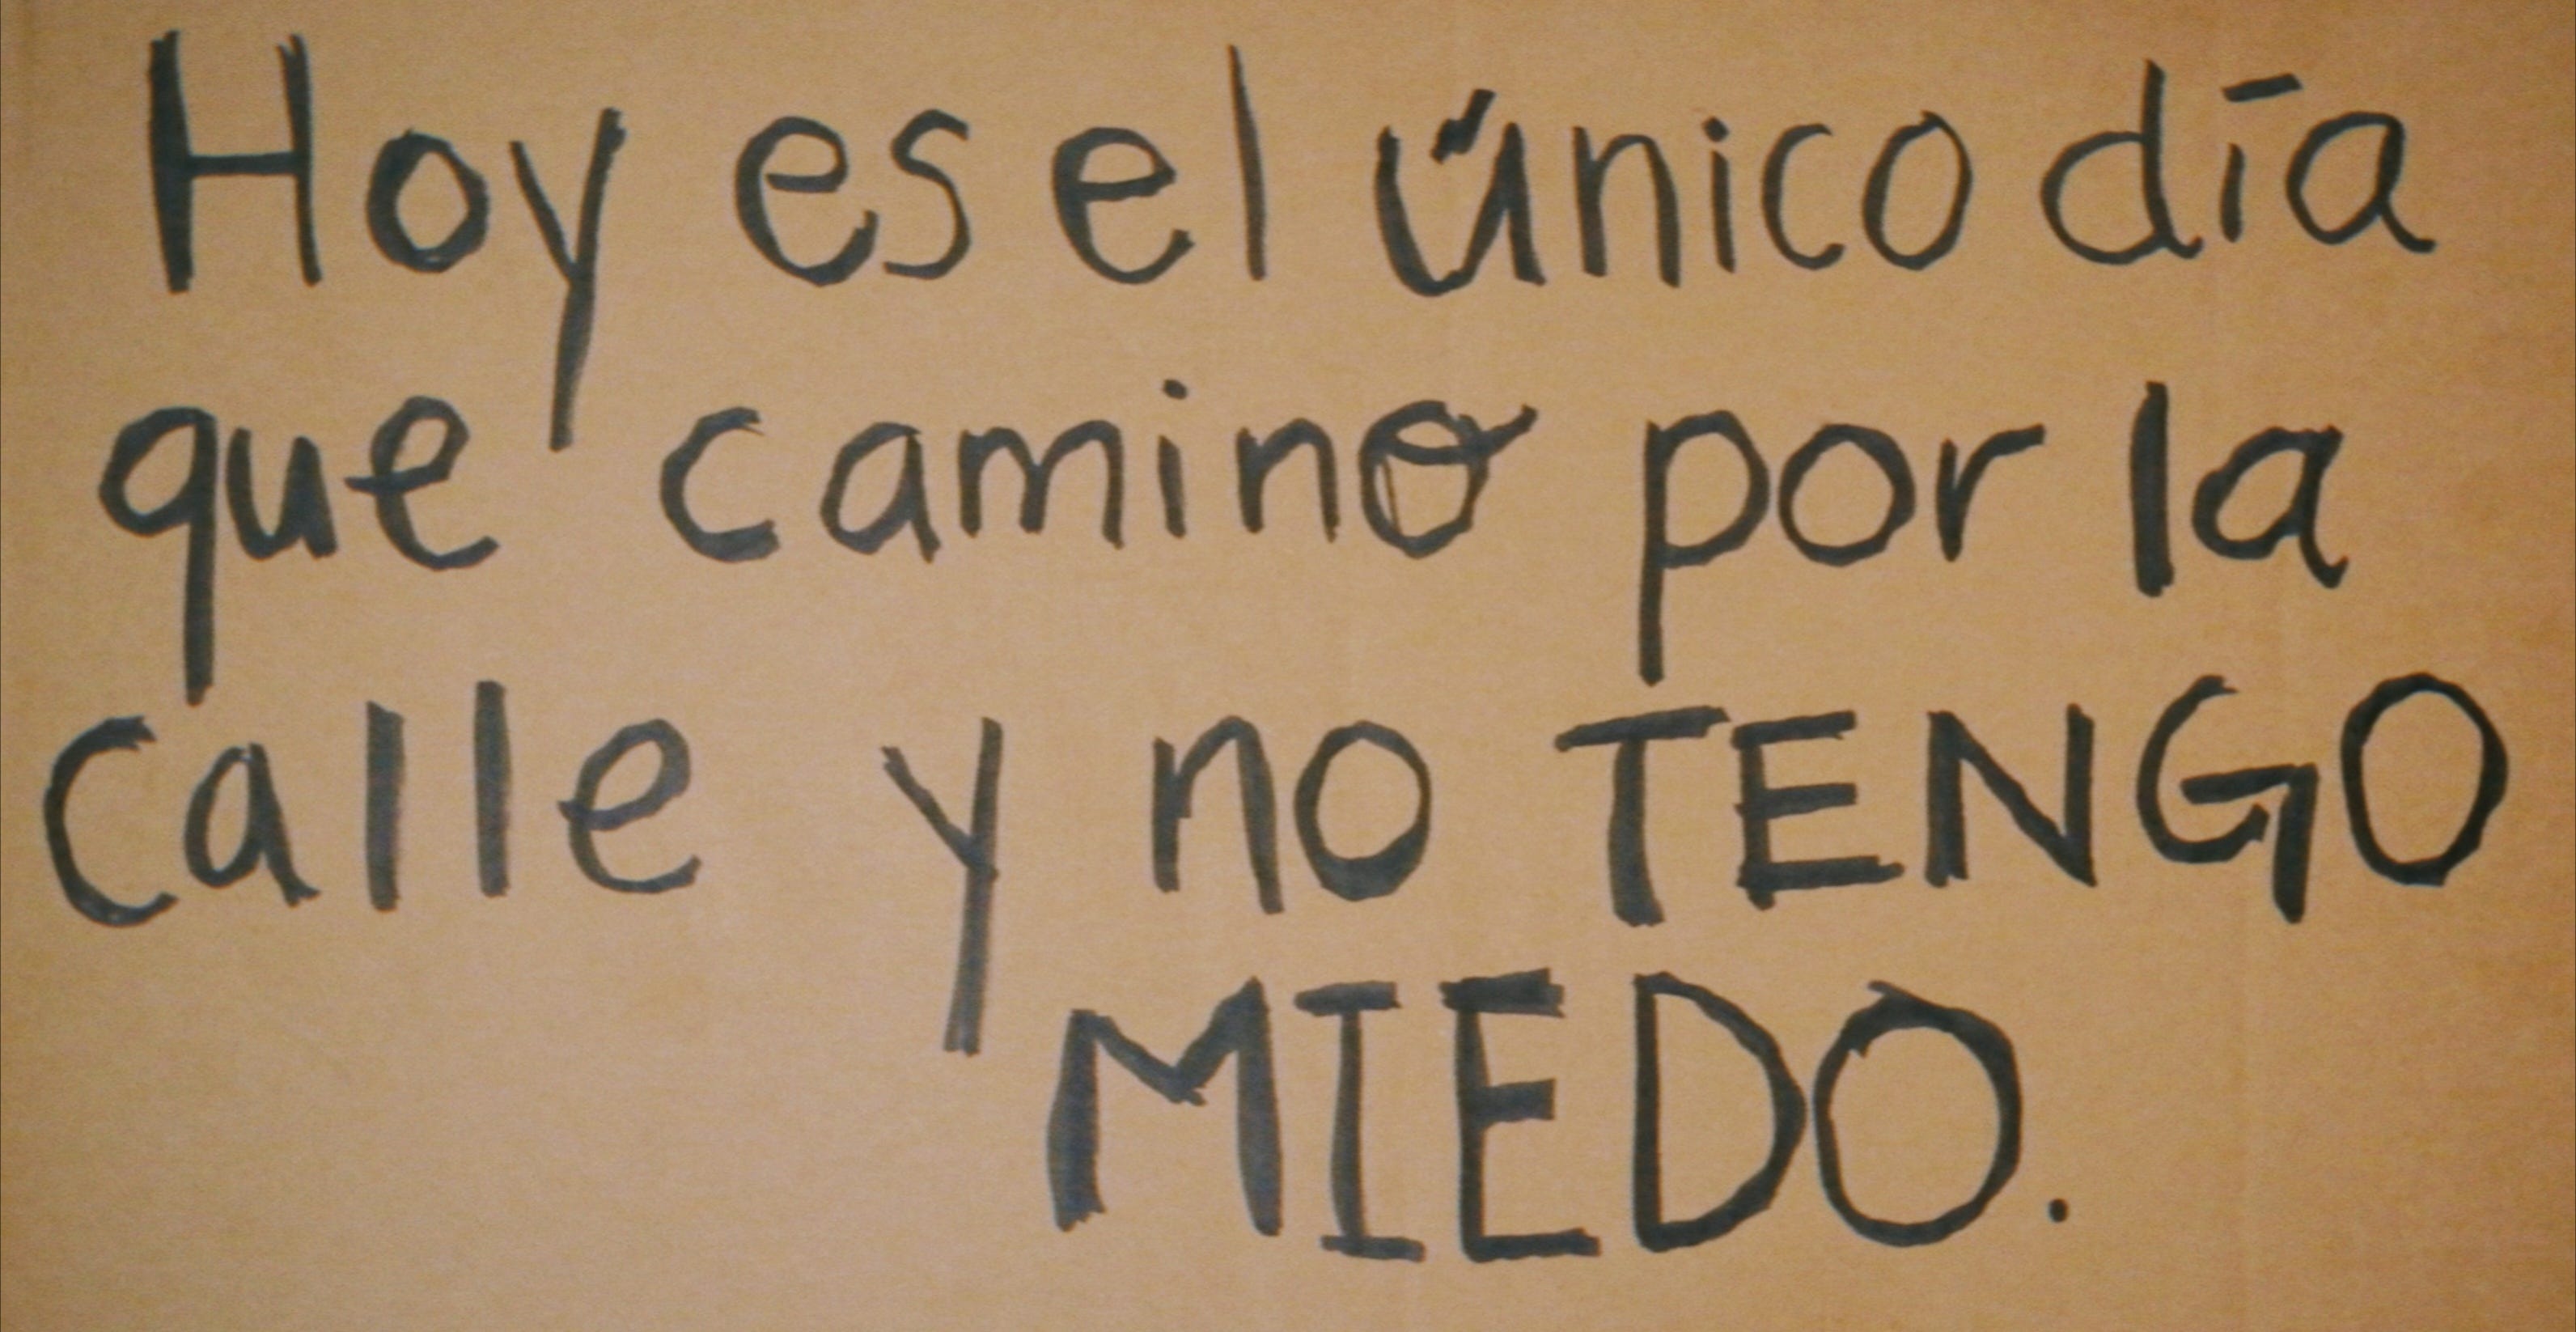 Hoy es el único día
que camino por la
calle y no TENGO
MIEDO.